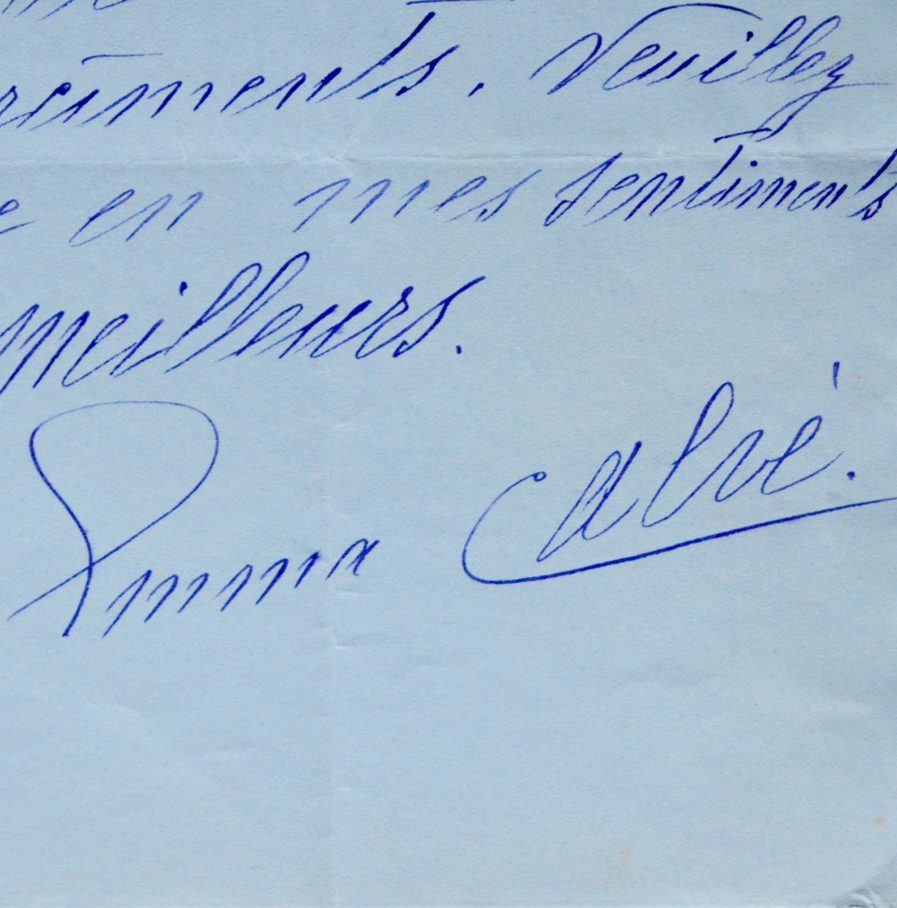 reiments. Veuillez
e en mes sentiments
meilleurs.
Emma Calvé.